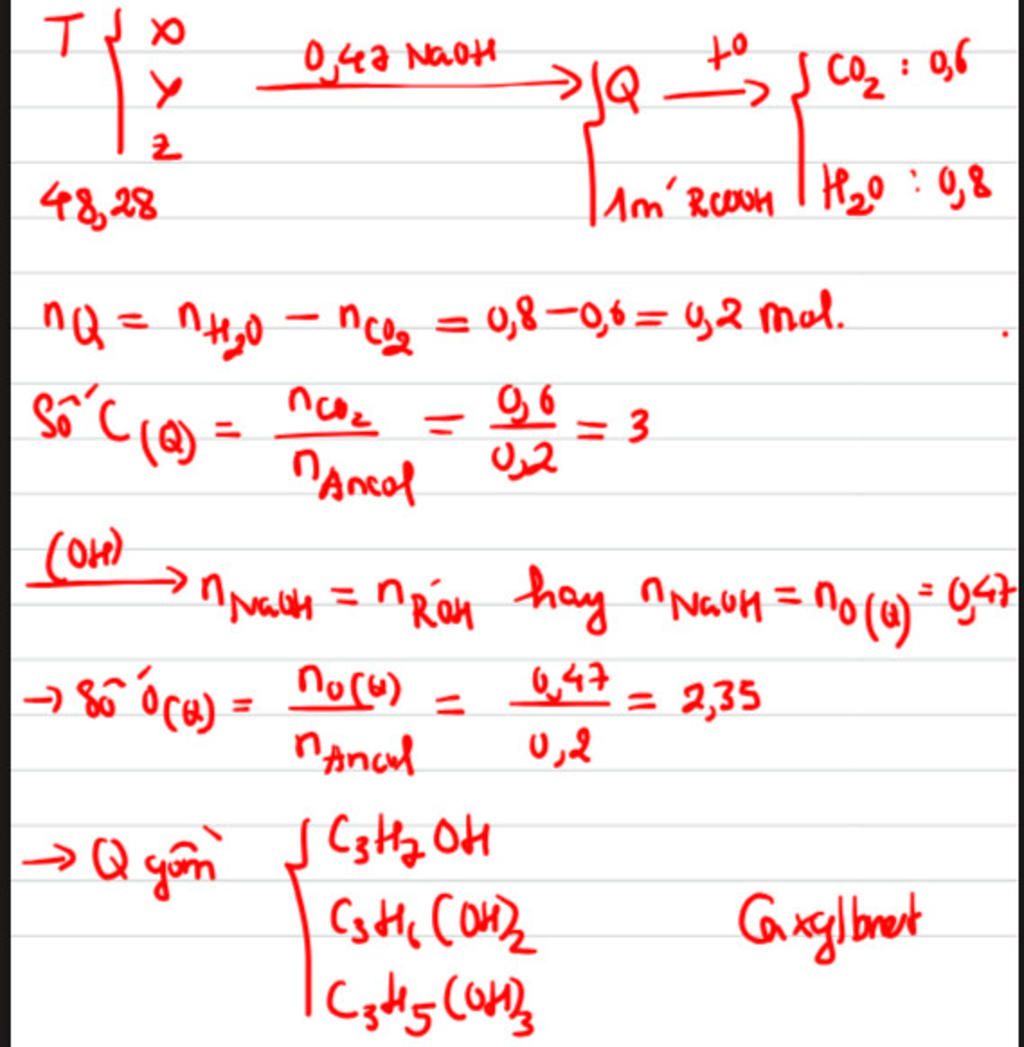 T { X
Y
Z
48,28
0,47 NaOH
{ Q
1 m' RCOOH
t⁰
{ CO₂ : 0,6
H₂O : 0,8
nQ = nH₂O − nCO₂ = 0,8 − 0,6 = 0,2 mol.
Số C (Q) = nCO₂ / nAncol = 0,6 / 0,2 = 3
(OH) → nNaOH = nR'OH hay nNaOH = nO(Q) = 0,47
→ Số O(Q) = nO(Q) / nAncol = 0,47 / 0,2 = 2,35
→ Q gồm { C₃H₇OH
C₃H₆(OH)₂
C₃H₅(OH)₃